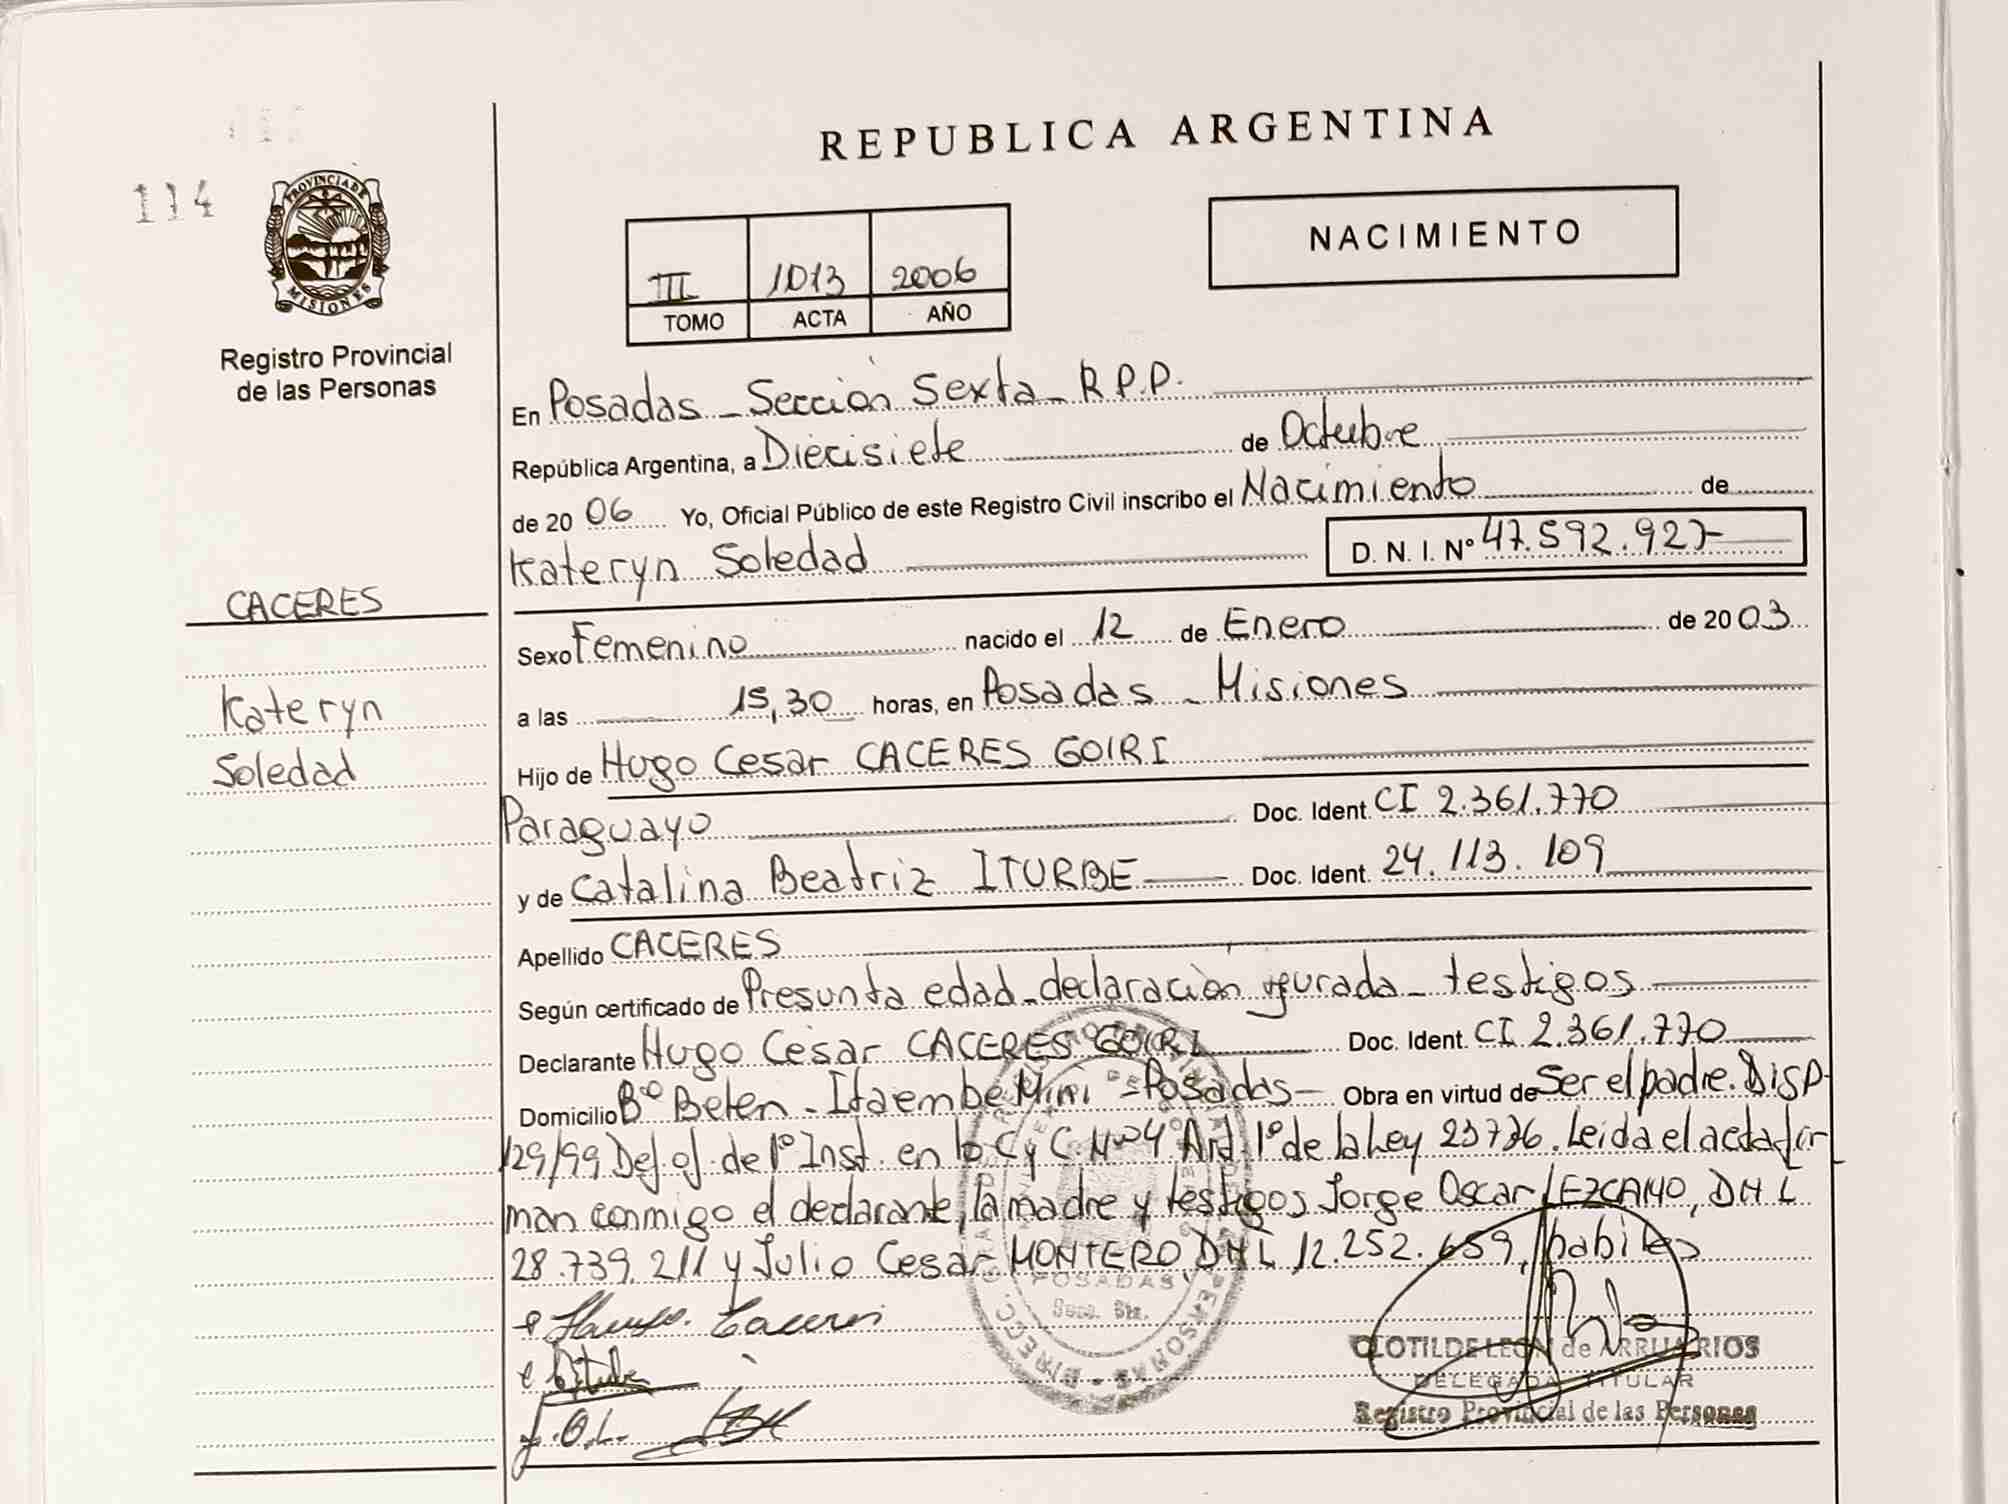 REPUBLICA ARGENTINA
114
PROVINCIA DE
MISIONES
Registro Provincial
de las Personas
NACIMIENTO
III 1013 2006
TOMO ACTA AÑO
En Posadas - Sección Sexta - R.P.P.
República Argentina, a Diecisiete de Octubre
de 20 06 Yo, Oficial Público de este Registro Civil inscribo el Nacimiento de
Kateryn Soledad D. N. I. Nº 47.592.927
CACERES
Kateryn
Soledad
Sexo Femenino nacido el 12 de Enero de 20 03
a las 15,30 horas, en Posadas - Misiones
Hijo de Hugo Cesar CACERES GOIRI
Paraguayo Doc. Ident. CI 2.361.770
y de Catalina Beatriz ITURBE Doc. Ident. 24.113.109
Apellido CACERES
Según certificado de Presunta edad - declaración jurada - testigos
Declarante Hugo Cesar CACERES GOIRI Doc. Ident. CI 2.361.770
Domicilio Bº Belen - Itaembe Mini - Posadas - Obra en virtud de Ser el padre. Disp
129/99 Def. of. de 1º Inst. en lo C y C. Nº 4 Art. 1º de la Ley 23776. Leida el acta for
man conmigo el declarante, la madre y testigos Jorge Oscar LEZCANO, DNI
28.739.211 y Julio Cesar MONTERO DNI 12.252.659, habiles
POSADAS
Secc. 6ta.
J.O.L.
CLOTILDE LEON de ARRUARRIOS
DELEGADA TITULAR
Registro Provincial de las Personas